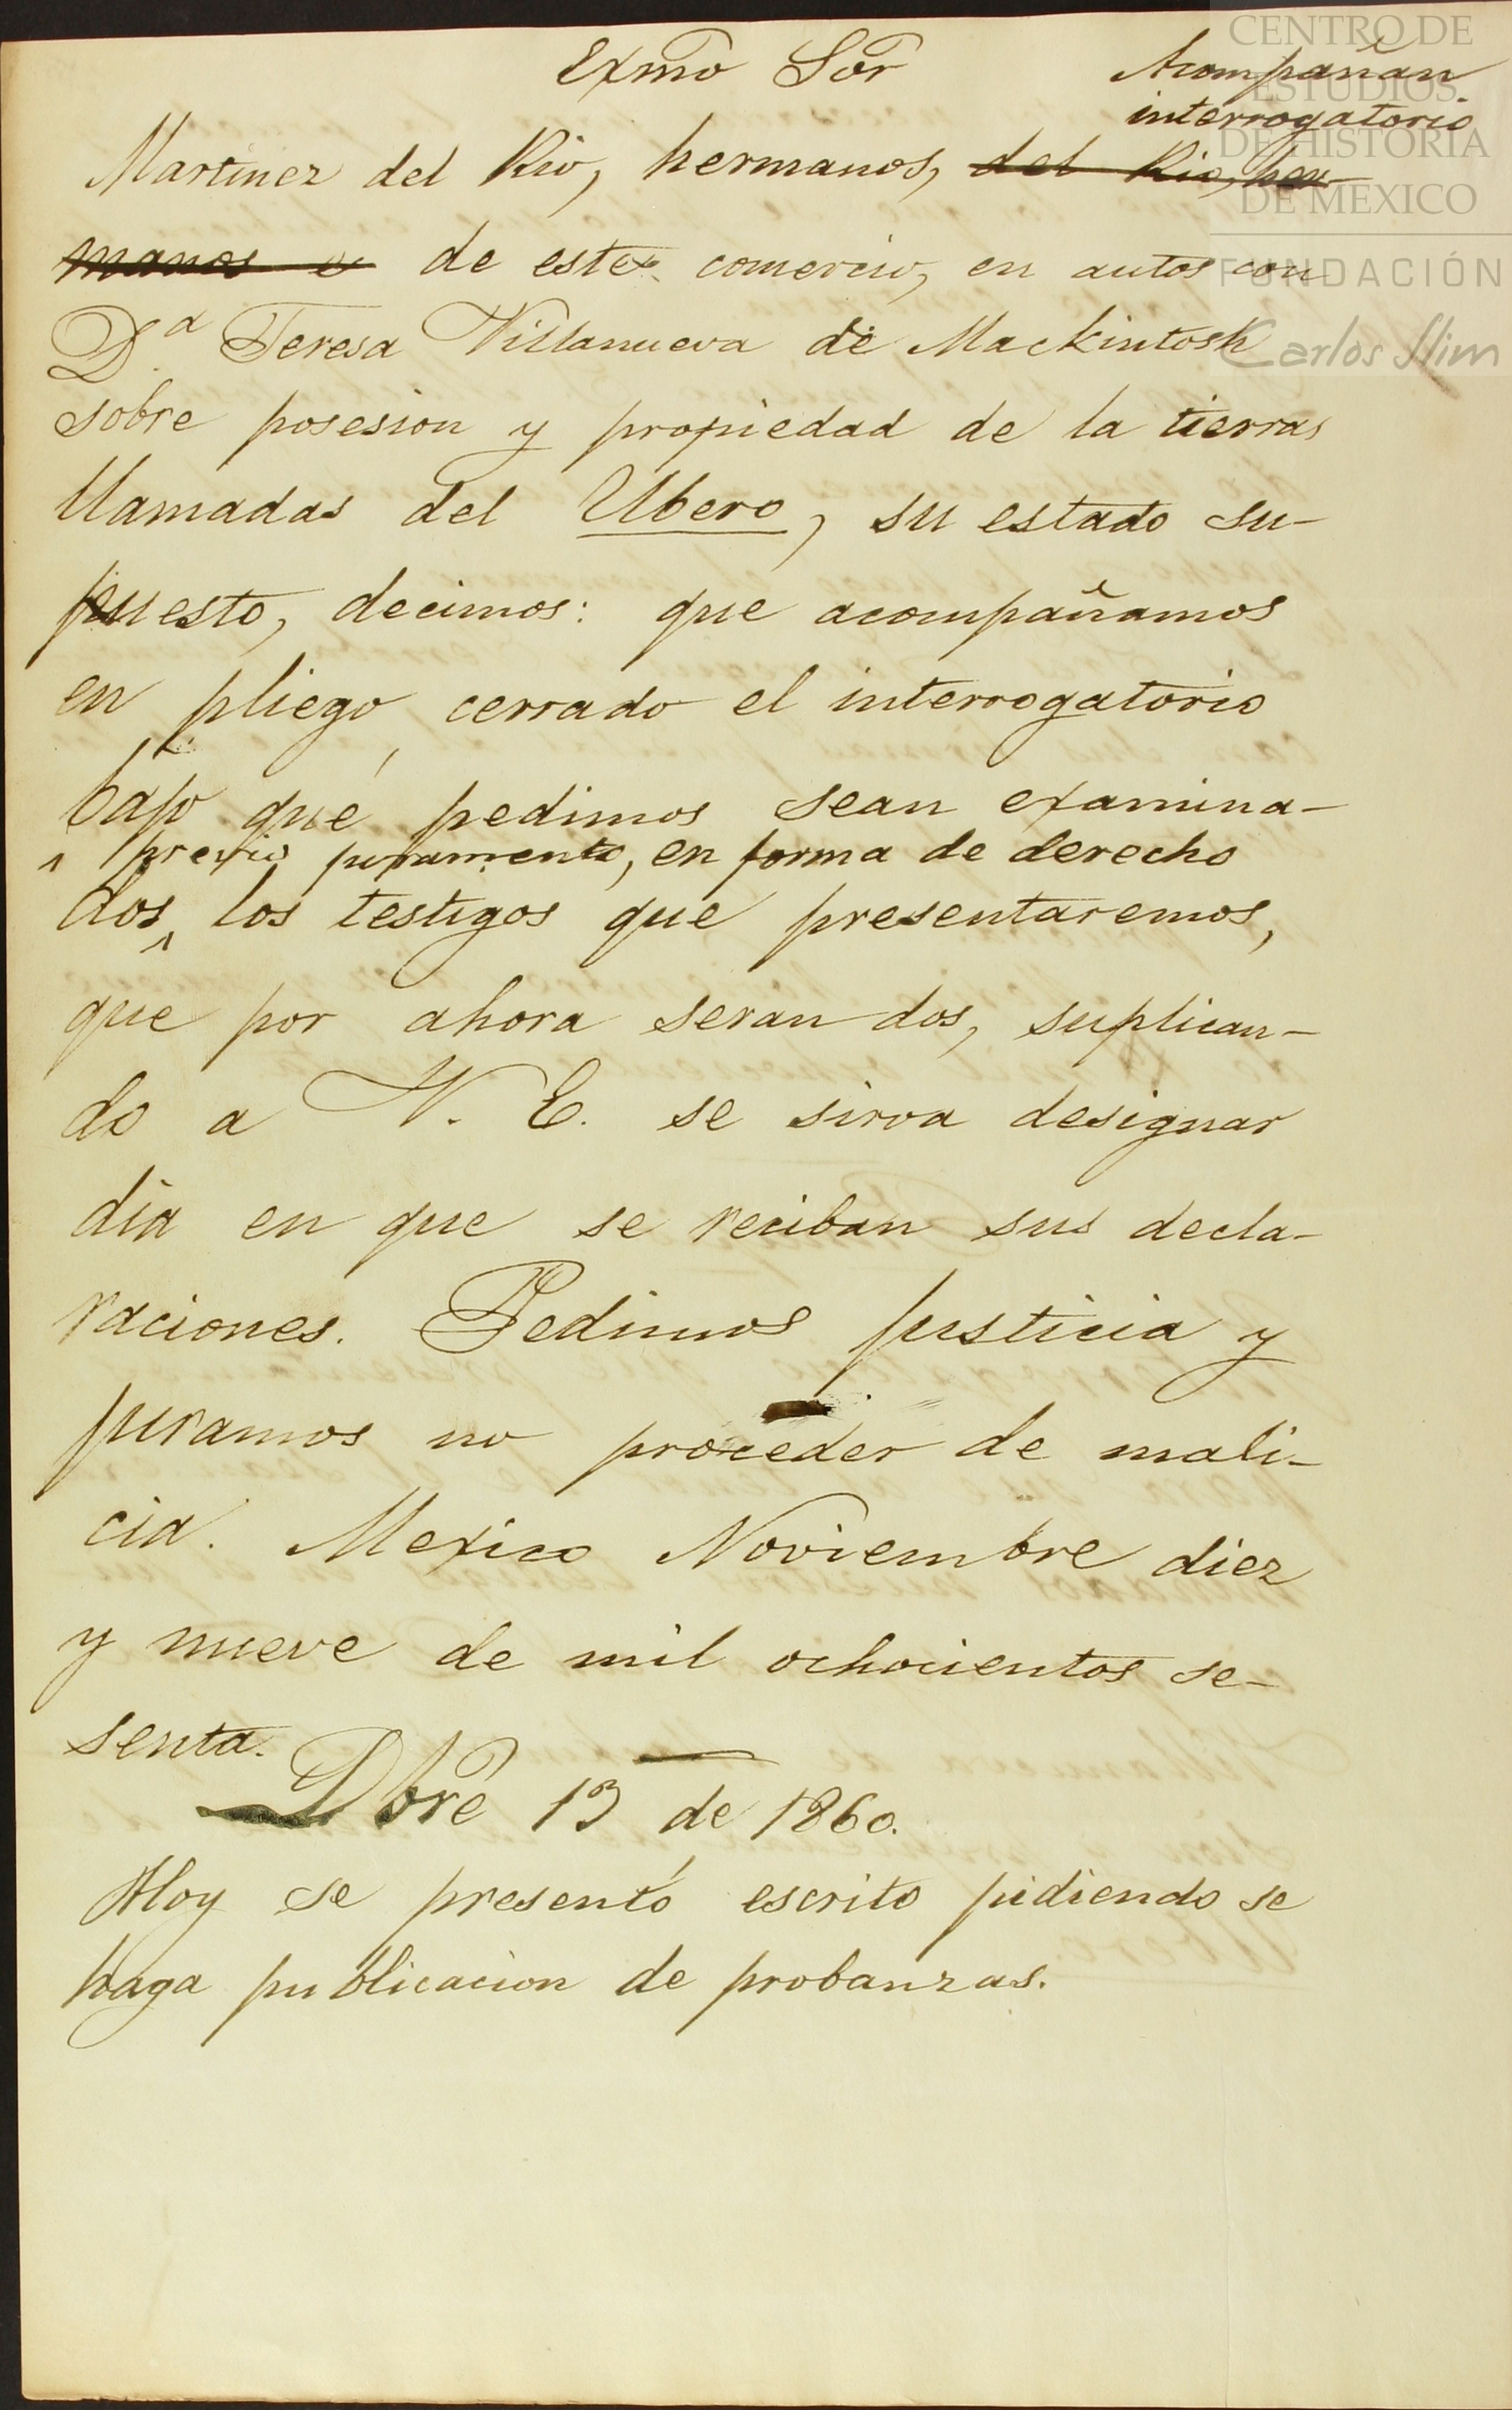 Exmo Sor
Acompañan
interrogatorio
Martinez del Rio, hermanos, del Rio, her-
manos de este comercio, en autos con
D.ª Teresa Villanueva de Mackintosh
sobre posesion y propiedad de la tierras
llamadas del Ubero, su estado su-
puesto, decimos: que acompañamos
en pliego cerrado el interrogatorio
bajo que pedimos sean examina-
previo juramento, en forma de derecho
dos, los testigos que presentaremos,
que por ahora seran dos, suplican-
do a V. E. se sirva designar
dia en que se reciban sus decla-
raciones. Pedimos justicia y
juramos no proceder de mali-
cia. Mexico Noviembre diez
y nueve de mil ochocientos se-
senta.
Dbre 13 de 1860.
Hoy se presentó escrito pidiendo se
haga publicacion de probanzas.
CENTRO DE
ESTUDIOS
DE HISTORIA
DE MEXICO
FUNDACIÓN
Carlos Slim